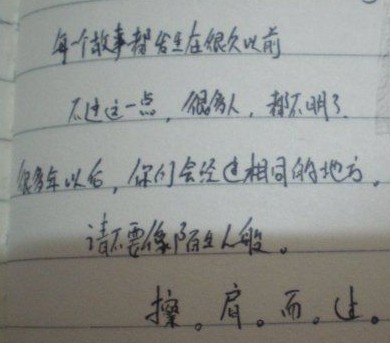 每个故事都发生在很久以前
不过这一点，很多人，都不明了.
很多年以后，你们会经过相同的地方。
请不要像陌生人般。
擦。肩。而。过。